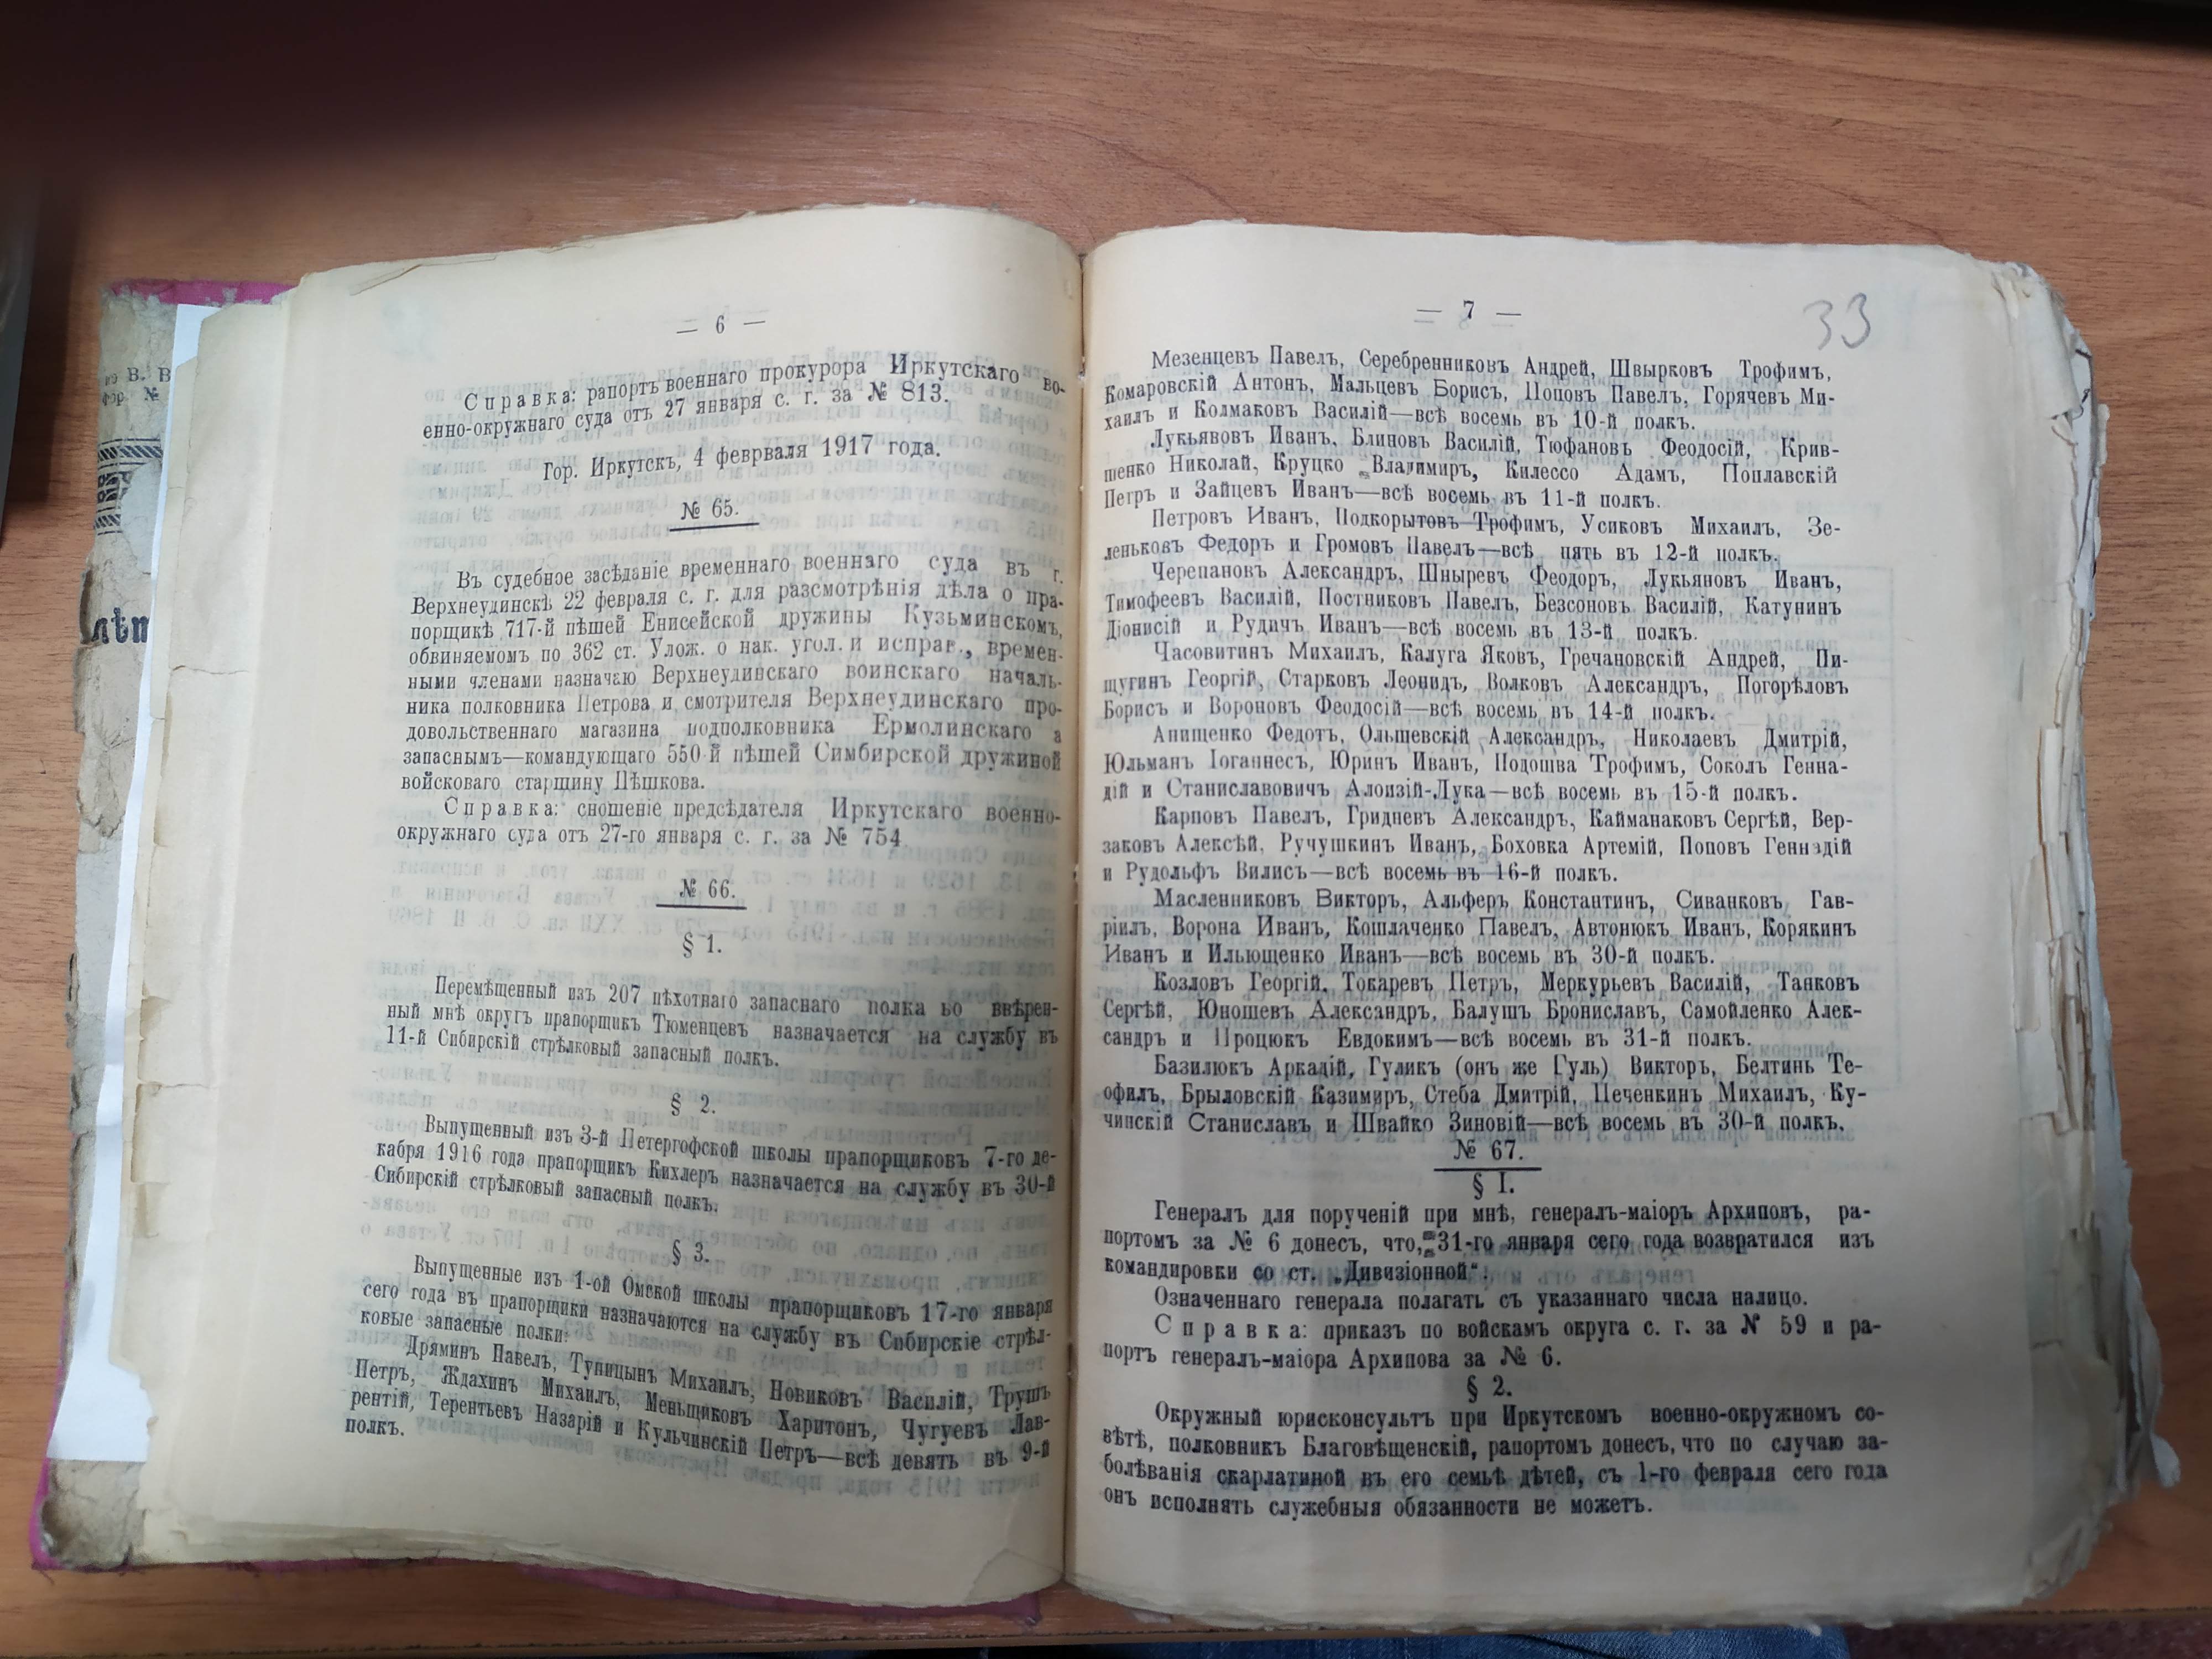 — 6 —
Справка: рапортъ военнаго прокурора Иркутскаго во-
енно-окружнаго суда отъ 27 января с. г. за № 813.
Гор. Иркутскъ, 4 феврваля 1917 года.
№ 65.
Въ судебное засѣданіе временнаго военнаго суда въ г.
Верхнеудинскѣ 22 февраля с. г. для разсмотрѣнія дѣла о пра-
порщикѣ 717-й пѣшей Енисейской дружины Кузьминскомъ,
обвиняемомъ по 362 ст. Улож. о нак. угол. и исправ., времен-
ными членами назначаю Верхнеудинскаго воинскаго началь-
ника полковника Петрова и смотрителя Верхнеудинскаго про-
довольственнаго магазина подполковника Ермолинскаго а
запаснымъ—командующаго 550-й пѣшей Симбирской дружиной
войсковаго старшину Пѣшкова.
Справка: сношеніе предсѣдателя Иркутскаго военно-
окружнаго суда отъ 27-го января с. г. за № 754
№ 66.
§ 1.
Перемѣщенный изъ 207 пѣхотнаго запаснаго полка во ввѣрен-
ный мнѣ округъ прапорщикъ Тюменцевъ назначается на службу въ
11-й Сибирскій стрѣлковый запасный полкъ.
§ 2.
Выпущенный изъ 3-й Петергофской школы прапорщиковъ 7-го де-
кабря 1916 года прапорщикъ Кихлеръ назначается на службу въ 30-й
Сибирскій стрѣлковый запасный полкъ.
§ 3.
Выпущенные изъ 1-ой Омской школы прапорщиковъ 17-го января
сего года въ прапорщики назначаются на службу въ Сибирскіе стрѣл-
ковые запасные полки:
Дряминъ Павелъ, Туницынъ Михаилъ, Новиковъ Василій, Трушъ
Петръ, Ждахинъ Михаилъ, Меньщиковъ Харитонъ, Чугуевъ Лав-
рентій, Терентьевъ Назарій и Кульчинскій Петръ—всѣ девять въ 9-й
полкъ.
— 7 —
33
Мезенцевъ Павелъ, Серебренниковъ Андрей, Швырковъ Трофимъ,
Комаровскій Антонъ, Мальцевъ Борисъ, Попцовъ Павелъ, Горячевъ Ми-
хаилъ и Колмаковъ Василій—всѣ восемь въ 10-й полкъ.
Лукьявовъ Иванъ, Блиновъ Василій, Тюфановъ Феодосій, Крив-
шенко Николай, Круцко Владимиръ, Килессо Адамъ, Поплавскій
Петръ и Зайцевъ Иванъ—всѣ восемь въ 11-й полкъ.
Петровъ Иванъ, Подкорытовъ Трофимъ, Усиковъ Михаилъ, Зе-
леньковъ Федоръ и Громовъ Павелъ—всѣ пять въ 12-й полкъ.
Черепановъ Александръ, Шныревъ Феодоръ, Лукьяновъ Иванъ,
Тимофеевъ Василій, Постниковъ Павелъ, Безсоновъ Василій, Катунинъ
Діонисій и Рудичъ Иванъ—всѣ восемь въ 13-й полкъ.
Часовитинъ Михаилъ, Калуга Яковъ, Гречановскій Андрей, Пи-
щугинъ Георгій, Старковъ Леонидъ, Волковъ Александръ, Погорѣловъ
Борисъ и Вороновъ Феодосій—всѣ восемь въ 14-й полкъ.
Анищенко Федотъ, Ольшевскій Александръ, Николаевъ Дмитрій,
Юльманъ Іоганнесъ, Юринъ Иванъ, Подошва Трофимъ, Соколъ Генна-
дій и Станиславовичъ Алоизій-Лука—всѣ восемь въ 15-й полкъ.
Карповъ Павелъ, Гридневъ Александръ, Кайманаковъ Сергѣй, Вер-
заковъ Алексѣй, Ручушкинъ Иванъ, Боховка Артемій, Поповъ Геннадій
и Рудольфъ Вилисъ—всѣ восемь въ 16-й полкъ.
Масленниковъ Викторъ, Альферъ Константинъ, Сиванковъ Гав-
ріилъ, Ворона Иванъ, Кошлаченко Павелъ, Автонюкъ Иванъ, Корякинъ
Иванъ и Ильющенко Иванъ—всѣ восемь въ 30-й полкъ.
Козловъ Георгій, Токаревъ Петръ, Меркурьевъ Василій, Танковъ
Сергѣй, Юношевъ Александръ, Балушъ Брониславъ, Самойленко Алек-
сандръ и Процюкъ Евдокимъ—всѣ восемь въ 31-й полкъ.
Базилюкъ Аркадій, Гуликъ (онъ же Гуль) Викторъ, Белтинь Те-
офилъ, Брыловскій Казимиръ, Стеба Дмитрій, Печенкинъ Михаилъ, Ку-
чинскій Станиславъ и Швайко Зиновій—всѣ восемь въ 30-й полкъ.
№ 67.
§ I.
Генералъ для порученій при мнѣ, генералъ-маіоръ Архиповъ, ра-
портомъ за № 6 донесъ, что, 31-го января сего года возвратился изъ
командировки со ст. „Дивизіонной“.
Означеннаго генерала полагать съ указаннаго числа налицо.
Справка: приказъ по войскамъ округа с. г. за № 59 и ра-
портъ генералъ-маіора Архипова за № 6.
§ 2.
Окружный юрисконсультъ при Иркутскомъ военно-окружномъ со-
вѣтѣ, полковникъ Благовѣщенскій, рапортомъ донесъ, что по случаю за-
болѣванія скарлатиной въ его семьѣ дѣтей, съ 1-го февраля сего года
онъ исполнять служебныя обязанности не можетъ.